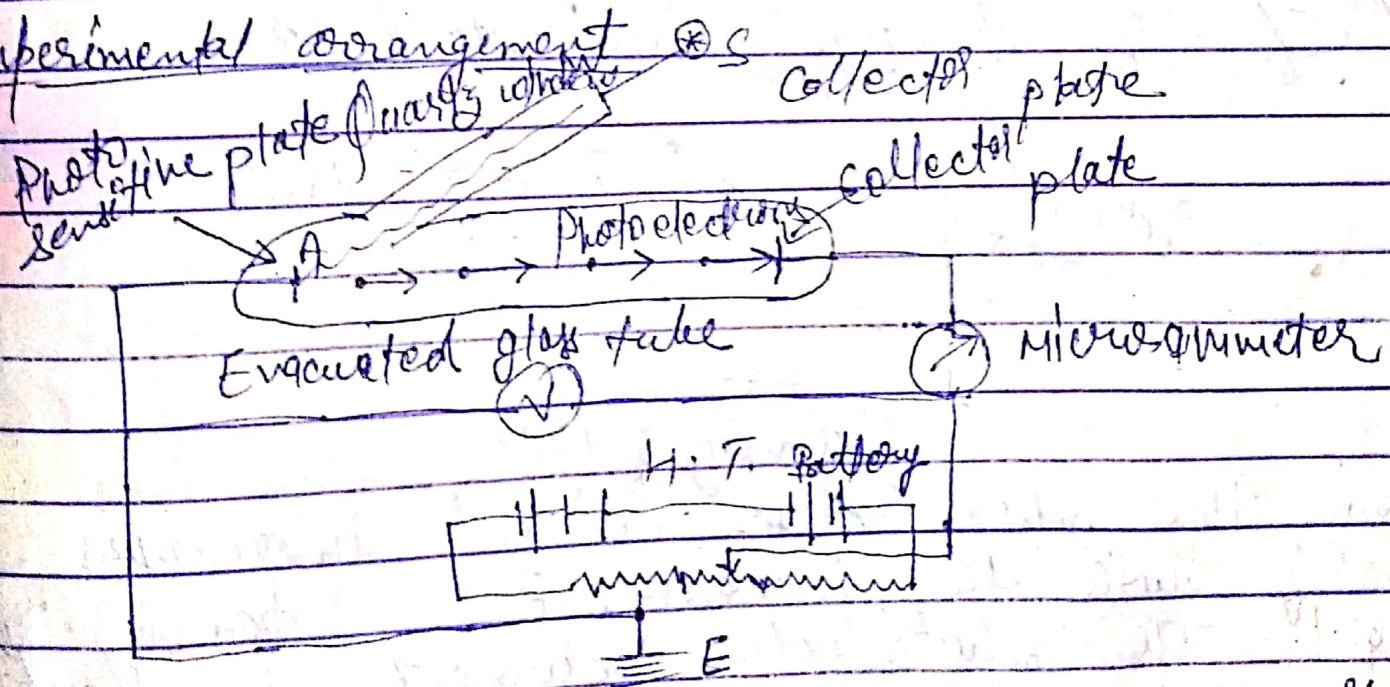 perimental arrangement ⊛ S
Collector plate
Photo sensitive plate
Quartz
Collector plate
A
Photoelectrons
Evacuated glass tube
Microammeter
V
H. T. Battery
E